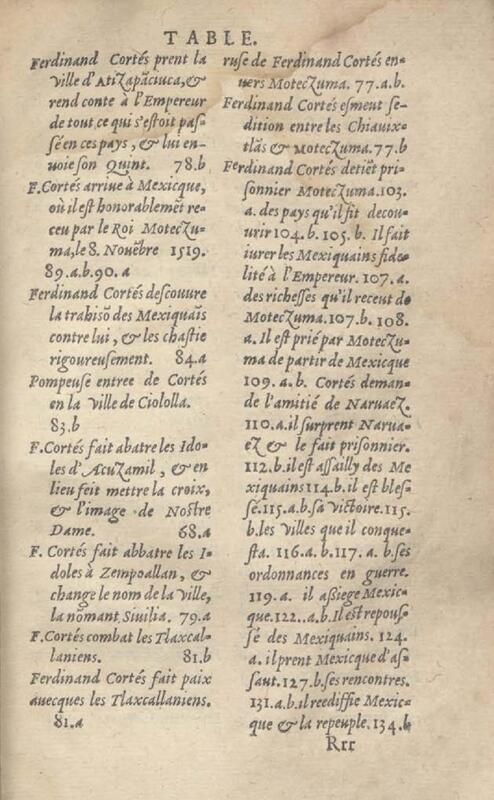 TABLE.
Ferdinand Cortés prent la
ville d'Atizapãciuca,&
rend conte à l'Empereur
de tout ce qui s'estoit pas-
sé en ces pays, & lui en-
uoie son Quint. 78.b
F.Cortés arriue à Mexicque,
où il est honorablemẽt re-
ceu par le Roi Moteczu-
ma, le 8. Nouẽbre 1519.
89.a.b.90.a
Ferdinand Cortés descouure
la trahisõ des Mexiquais
contre lui, & les chastie
rigoureusement. 84.a
Pompeuse entree de Cortés
en la ville de Ciololla.
83.b
F.Cortés fait abatre les Ido-
les d'Acuzamil, & en
lieu feit mettre la croix,
& l'image de Nostre
Dame. 68.a
F. Cortés fait abbatre les I-
doles à Zempoallan, &
change le nom de la ville,
la nõmant Siuilia. 79.a
F.Cortés combat les Tlaxcal-
laniens. 81.b
Ferdinand Cortés fait paix
auecques les Tlaxcallaniens.
81.a
ruse de Ferdinand Cortés en-
uers Moteczuma. 77.a.b.
Ferdinand Cortés esmeut se-
dition entre les Chiauix-
tlãs & Moteczuma.77.b
Ferdinand Cortés detiẽt pri-
sonnier Moteczuma.103.
a. des pays qu'il fit decou-
urir 104.b. 105.b. Il fait
iurer les Mexiquains fide-
lité à l'Empereur. 107.a.
des richesses qu'il receut de
Moteczuma.107.b. 108.
a. Il est prié par Moteczu-
ma de partir de Mexicque
109.a.b. Cortés deman-
de l'amitié de Naruaez.
110.a.il surprent Narua-
ez & le fait prisonnier.
112.b.il est assailly des Me
xiquains 114.b.il est bles-
sé.115.a.b.sa victoire.115.
b.les villes que il conque-
sta. 116.a.b.117. a. b.ses
ordonnances en guerre.
119.a. il aßiege Mexic-
que.122..a.b.Il est repous-
sé des Mexiquains. 124.
a. il prent Mexicque d'as-
saut.127.b.ses rencontres.
131.a.b.il reediffie Mexic-
que & la repeuple.134.b
Rrr